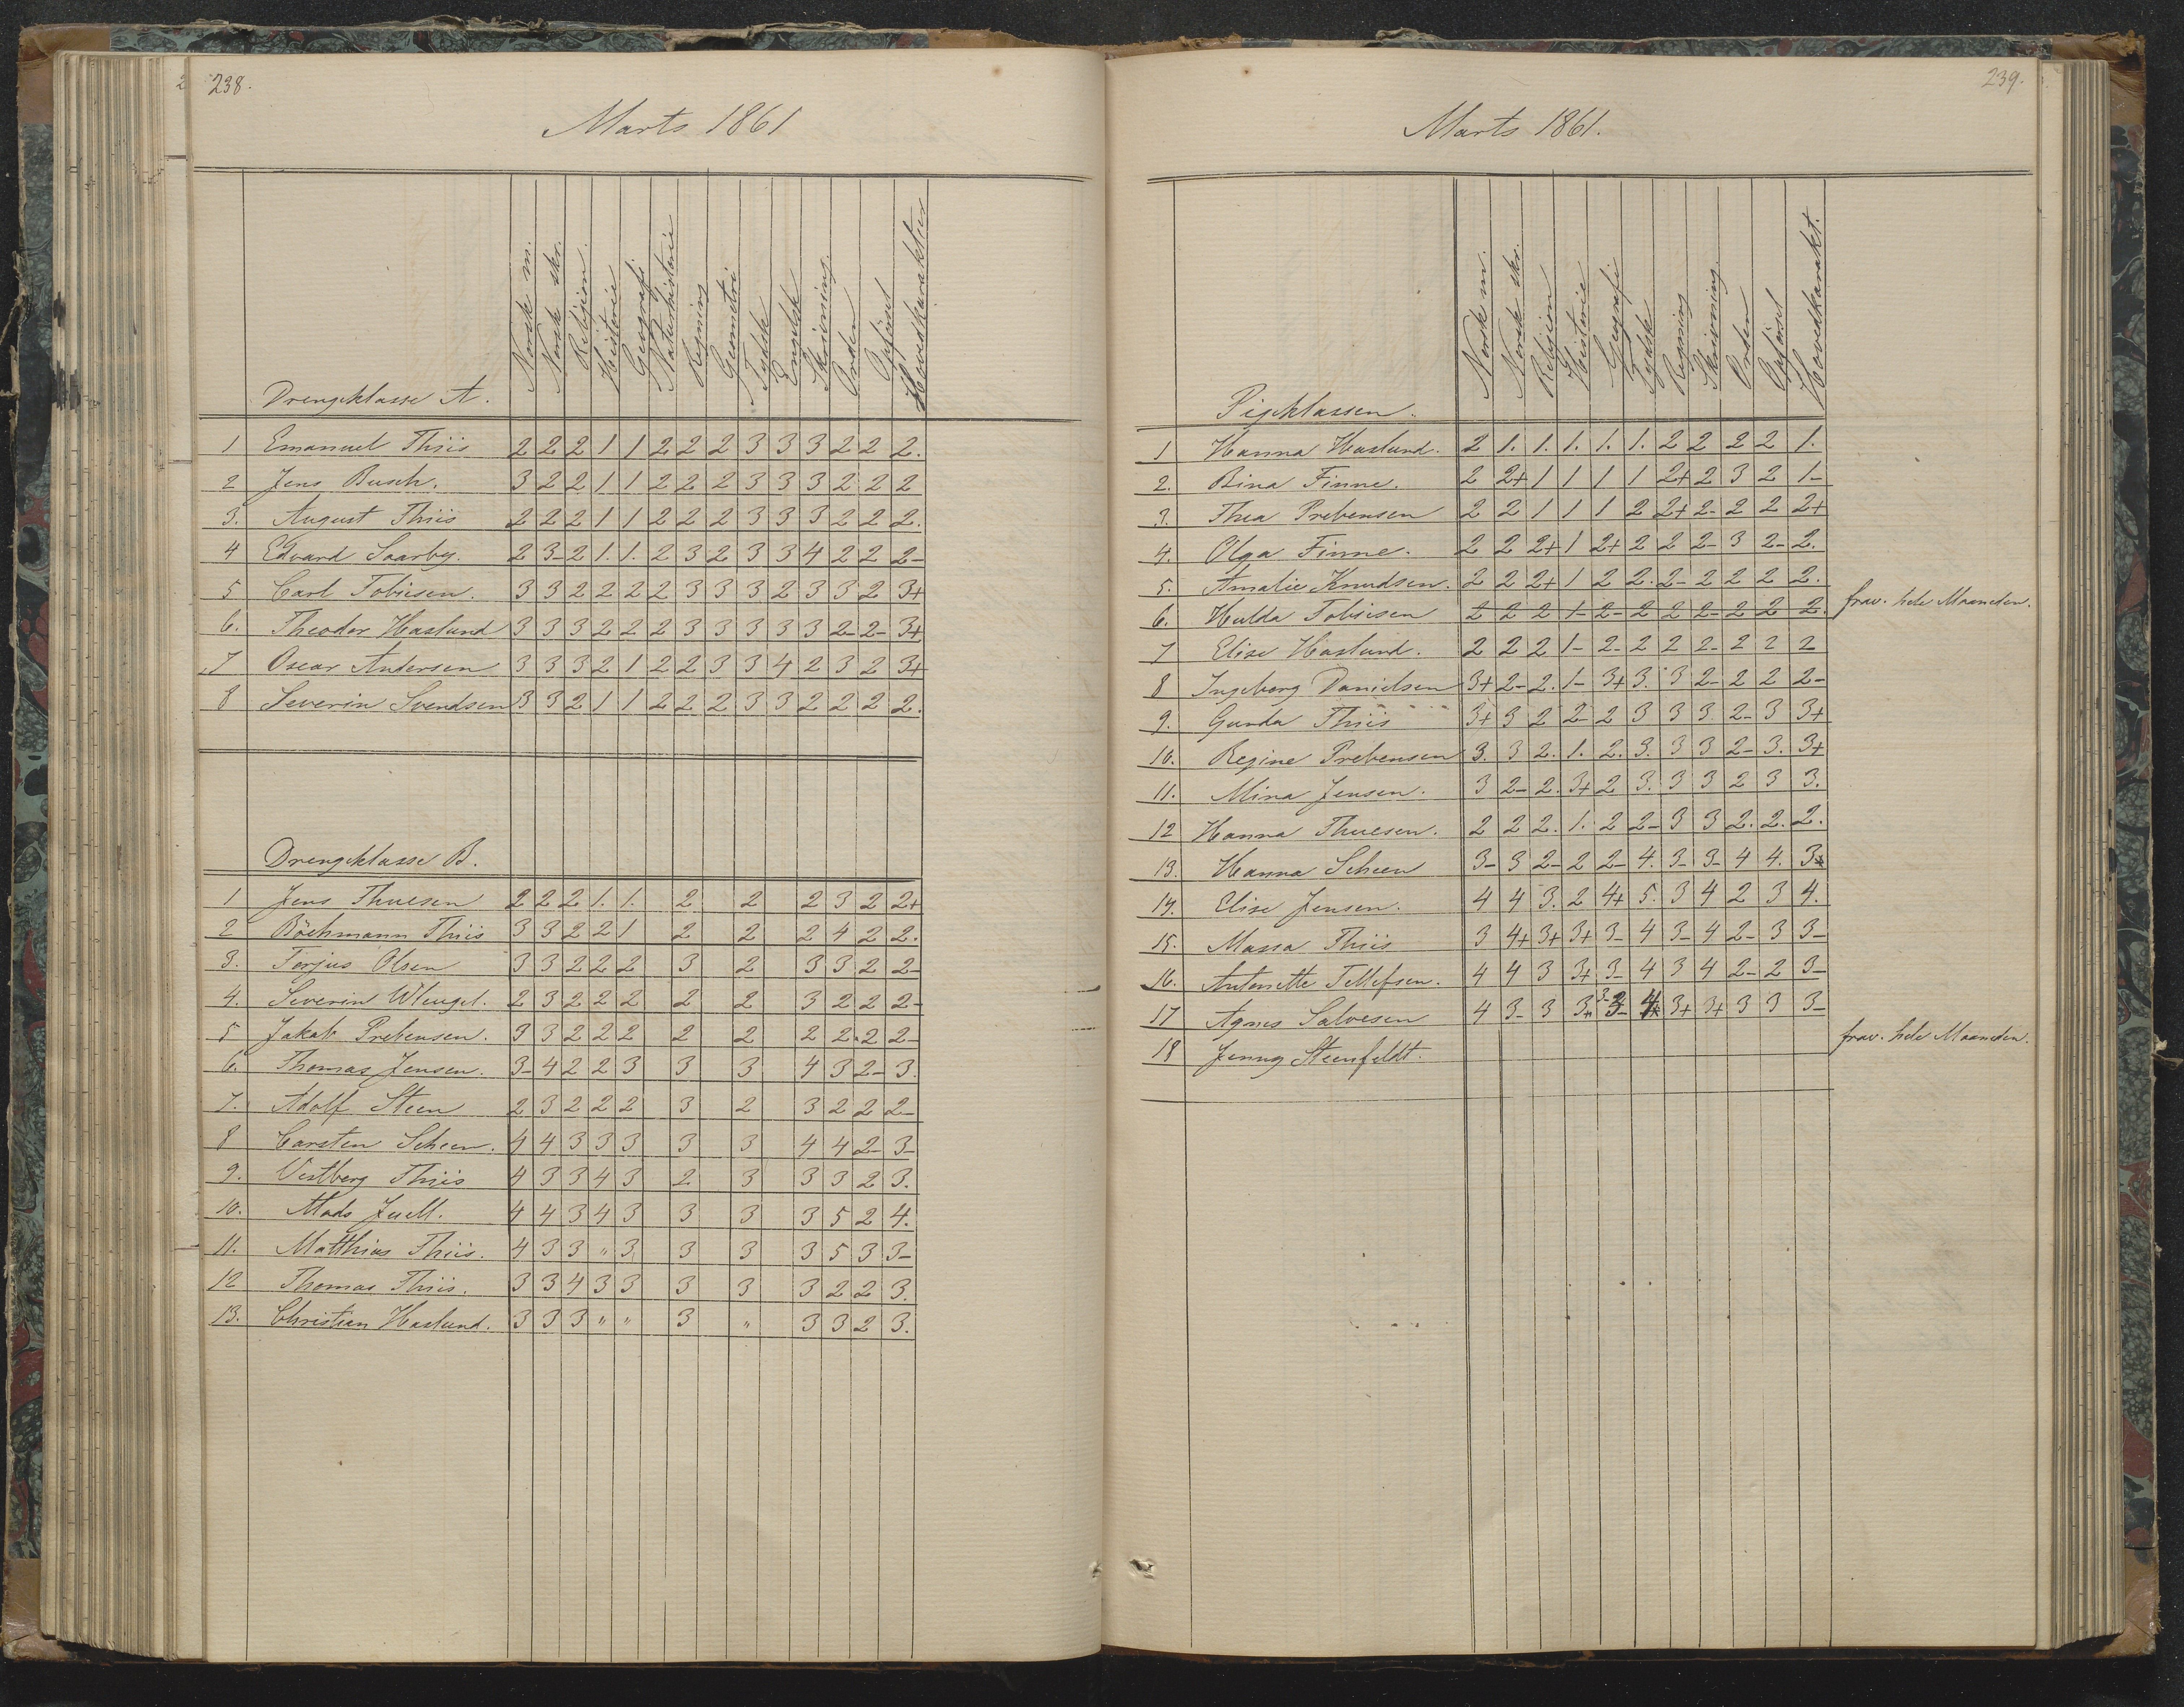 238.
Marts 1861
Drengeklasse A. Norsk m. Norsk skr. Religion. Historie Geografi Naturhistorie Regning Geometri Tydsk Engelsk Skrivning. Orden Opförsel Hovedkarakter
1 Emanuel Thiis 2 2 2 1 1 2 2 2 3 3 3 2 2 2.
2 Jens Busch. 3 2 2 1 1 2 2 2 3 3 3 2 2 2
3. August Thiis 2 2 2 1 1 2 2 2 3 3 3 2 2 2.
4 Edvard Saarby. 2 3- 2 1. 1. 2 3 2 3 3 4 2 2 2-
5 Carl Tobiesen. 3 3 2 2 2 2 3 3 3 2 3 3 2 3+
6. Theodor Haslund 3 3 3 2 2 2 3 3 3 3 3 2- 2- 3+
7 Oscar Andersen 3 3 3 2 1 2 2 3 3 4 2 3 2 3+
8 Severin Svendsen 3 3 2 1 1 2 2 2 3 3 2 2 2 2.
Drengeklasse B.
1 Jens Thuesen 2 2 2 1. 1. 2 2 2 3 2 2+
2 Böchmann Thiis 3 3 2 2 1 2 2 2 4 2 2.
3. Torjus Olsen 3 3 2 2 2 3 2 3 3 2 2-
4. Severin Wleugel. 2 3 2 2 2 2 2 3 2 2 2-
5 Jakob Prebensen. 3 3 2 2 2 2 2 2 2. 2 2-
6. Thomas Jensen. 3- 4 2 2 3 3 3 4 3 2- 3.
7. Adolf Steen 2 3 2 2 2 3 2 3 2 2 2-
8 Carsten Scheen. 4 4 3 3 3 3 3 4 4 2- 3-
9. Vestberg Thiis 4 3 3 4 3 2 3 3 3 2 3.
10. Mads Juell. 4 4 3 4 3 3 3 3 5 2 4.
11. Matthias Thiis. 4 3 3 " 3 3 3 3 5 3 3-
12 Thomas Thiis. 3 3 4 3 3 3 3 3 2 2 3.
13. Christian Haslund. 3 3 3 " " 3 " 3 3 2 3.
239.
Marts 1861.
Pigeklassen. Norsk m. Norsk skr. Religion Historie Geografi Tydsk Regning Skrivning. Orden Opförsel Hovedkarakt.
1 Hanna Haslund. 2 1. 1. 1. 1. 1. 2 2 2 2 1.
2. Bina Finne. 2 2+ 1 1 1 1 2+ 2 3 2 1-
3. Thea Prebensen 2 2 1 1 1 2 2+ 2- 2 2 2+
4. Olga Finne. 2 2 2+ 1 2+ 2 2 2- 3 2- 2.
5. Amalie Knudsen. 2 2 2+ 1 2 2. 2- 2 2 2 2.
6. Hulda Tobiesen 2 2 2 1- 2- 2 2 2- 2 2 2. frav. hele Maaneden.
7 Elise Haslund. 2 2 2 1- 2- 2 2 2- 2 2 2
8 Ingeborg Danielsen 3+ 2- 2. 1- 3+ 3. 3 2- 2 2 2-
9. Gunda Thiis 3+ 3 2 2- 2 3 3 3 2- 3 3+
10. Regine Prebensen 3. 3 2. 1. 2. 3. 3 3 2- 3. 3+
11. Mina Jensen. 3 2- 2. 3+ 2 3. 3 3 2 3 3.
12 Hanna Thuesen. 2 2 2. 1. 2 2- 3 3 2. 2. 2.
13. Hanna Scheen 3- 3 2- 2 2- 4. 3- 3- 4 4. 3
14. Elise Jensen. 4 4 3. 2 4+ 5. 3 4 2 3 4.
15. Massa Thiis 3 4+ 3+ 3+ 3- 4 3- 4 2- 3 3-
16. Antonette Tellefsen. 4 4 3 3+ 3- 4 3 4 2- 2 3-
17 Agnes Salvesen 4 3- 3 3+ 3- 4 3+ 3+ 3 3 3-
18 Jenny Steenfeldt. frav. hele Maaneden.